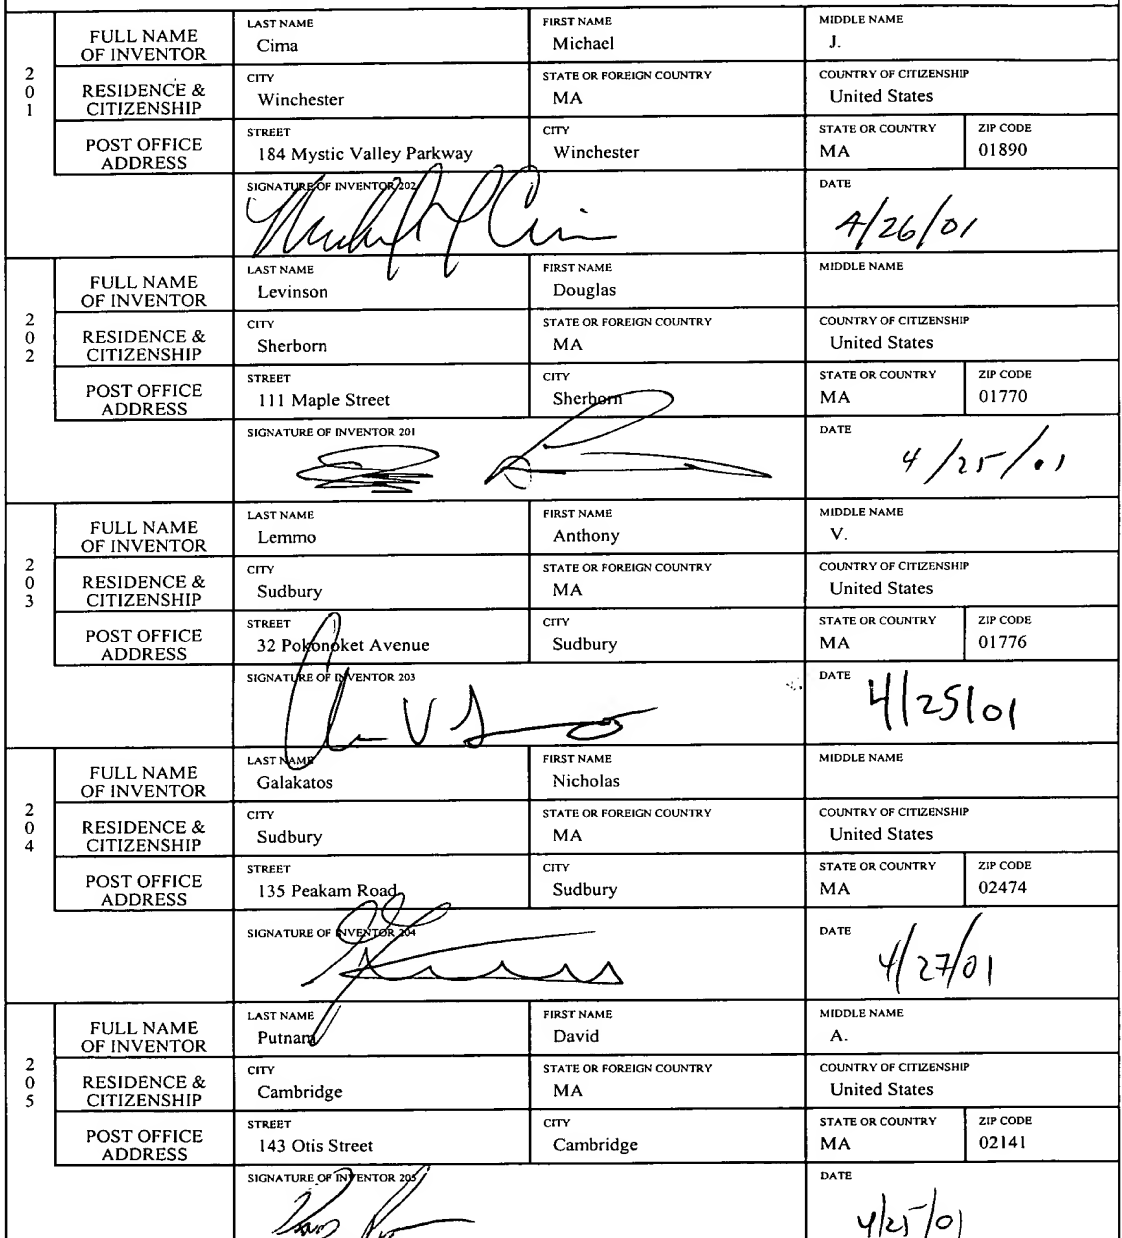 2 0 1
FULL NAME OF INVENTOR
LAST NAME
Cima
FIRST NAME
Michael
MIDDLE NAME
J.
RESIDENCE & CITIZENSHIP
CITY
Winchester
STATE OR FOREIGN COUNTRY
MA
COUNTRY OF CITIZENSHIP
United States
POST OFFICE ADDRESS
STREET
184 Mystic Valley Parkway
CITY
Winchester
STATE OR COUNTRY
MA
ZIP CODE
01890
SIGNATURE OF INVENTOR 202
Michael J Cima
DATE
4/26/01
2 0 2
FULL NAME OF INVENTOR
LAST NAME
Levinson
FIRST NAME
Douglas
MIDDLE NAME
RESIDENCE & CITIZENSHIP
CITY
Sherborn
STATE OR FOREIGN COUNTRY
MA
COUNTRY OF CITIZENSHIP
United States
POST OFFICE ADDRESS
STREET
111 Maple Street
CITY
Sherborn
STATE OR COUNTRY
MA
ZIP CODE
01770
SIGNATURE OF INVENTOR 201
DATE
4/25/01
2 0 3
FULL NAME OF INVENTOR
LAST NAME
Lemmo
FIRST NAME
Anthony
MIDDLE NAME
V.
RESIDENCE & CITIZENSHIP
CITY
Sudbury
STATE OR FOREIGN COUNTRY
MA
COUNTRY OF CITIZENSHIP
United States
POST OFFICE ADDRESS
STREET
32 Pokonoket Avenue
CITY
Sudbury
STATE OR COUNTRY
MA
ZIP CODE
01776
SIGNATURE OF INVENTOR 203
DATE
4/25/01
2 0 4
FULL NAME OF INVENTOR
LAST NAME
Galakatos
FIRST NAME
Nicholas
MIDDLE NAME
RESIDENCE & CITIZENSHIP
CITY
Sudbury
STATE OR FOREIGN COUNTRY
MA
COUNTRY OF CITIZENSHIP
United States
POST OFFICE ADDRESS
STREET
135 Peakam Road
CITY
Sudbury
STATE OR COUNTRY
MA
ZIP CODE
02474
SIGNATURE OF INVENTOR 204
DATE
4/27/01
2 0 5
FULL NAME OF INVENTOR
LAST NAME
Putnam
FIRST NAME
David
MIDDLE NAME
A.
RESIDENCE & CITIZENSHIP
CITY
Cambridge
STATE OR FOREIGN COUNTRY
MA
COUNTRY OF CITIZENSHIP
United States
POST OFFICE ADDRESS
STREET
143 Otis Street
CITY
Cambridge
STATE OR COUNTRY
MA
ZIP CODE
02141
SIGNATURE OF INVENTOR 205
DATE
4/25/01